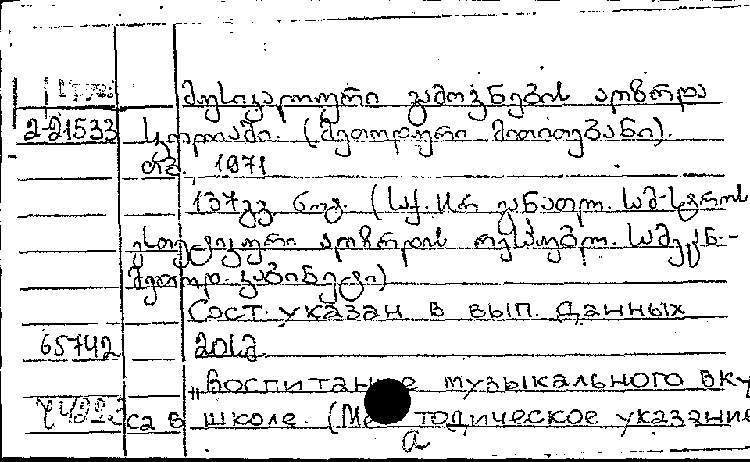 მუსიკალური გემოვნების აღზრდა
2-21533 სკოლაში. (მეთოდური მითითებანი).
თბ. 1971
137 გვ. ნოტ. (საქ. სსრ განათლ. სამ-სტროს
ესთეტიკური აღზრდის რესპუბლ. სამეცნ.-
მეთოდ. კაბინეტი)
Сост. указан в вып. данных
65742
„Воспитание музыкального вку
са в школе. (Методическое указание